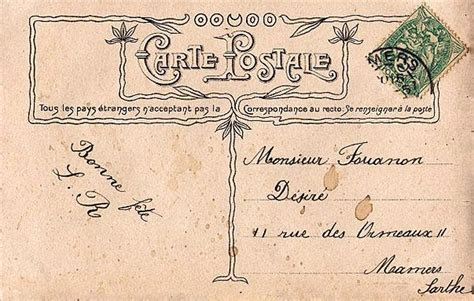 CARTE POSTALE
Tous les pays étrangers n'acceptent pas la Correspondance au recto. Se renseigner à la poste
Bonne fête
L. R
Monsieur Fouanon
Désiré
11 rue des Ormeaux 11
Mamers
Sarthe